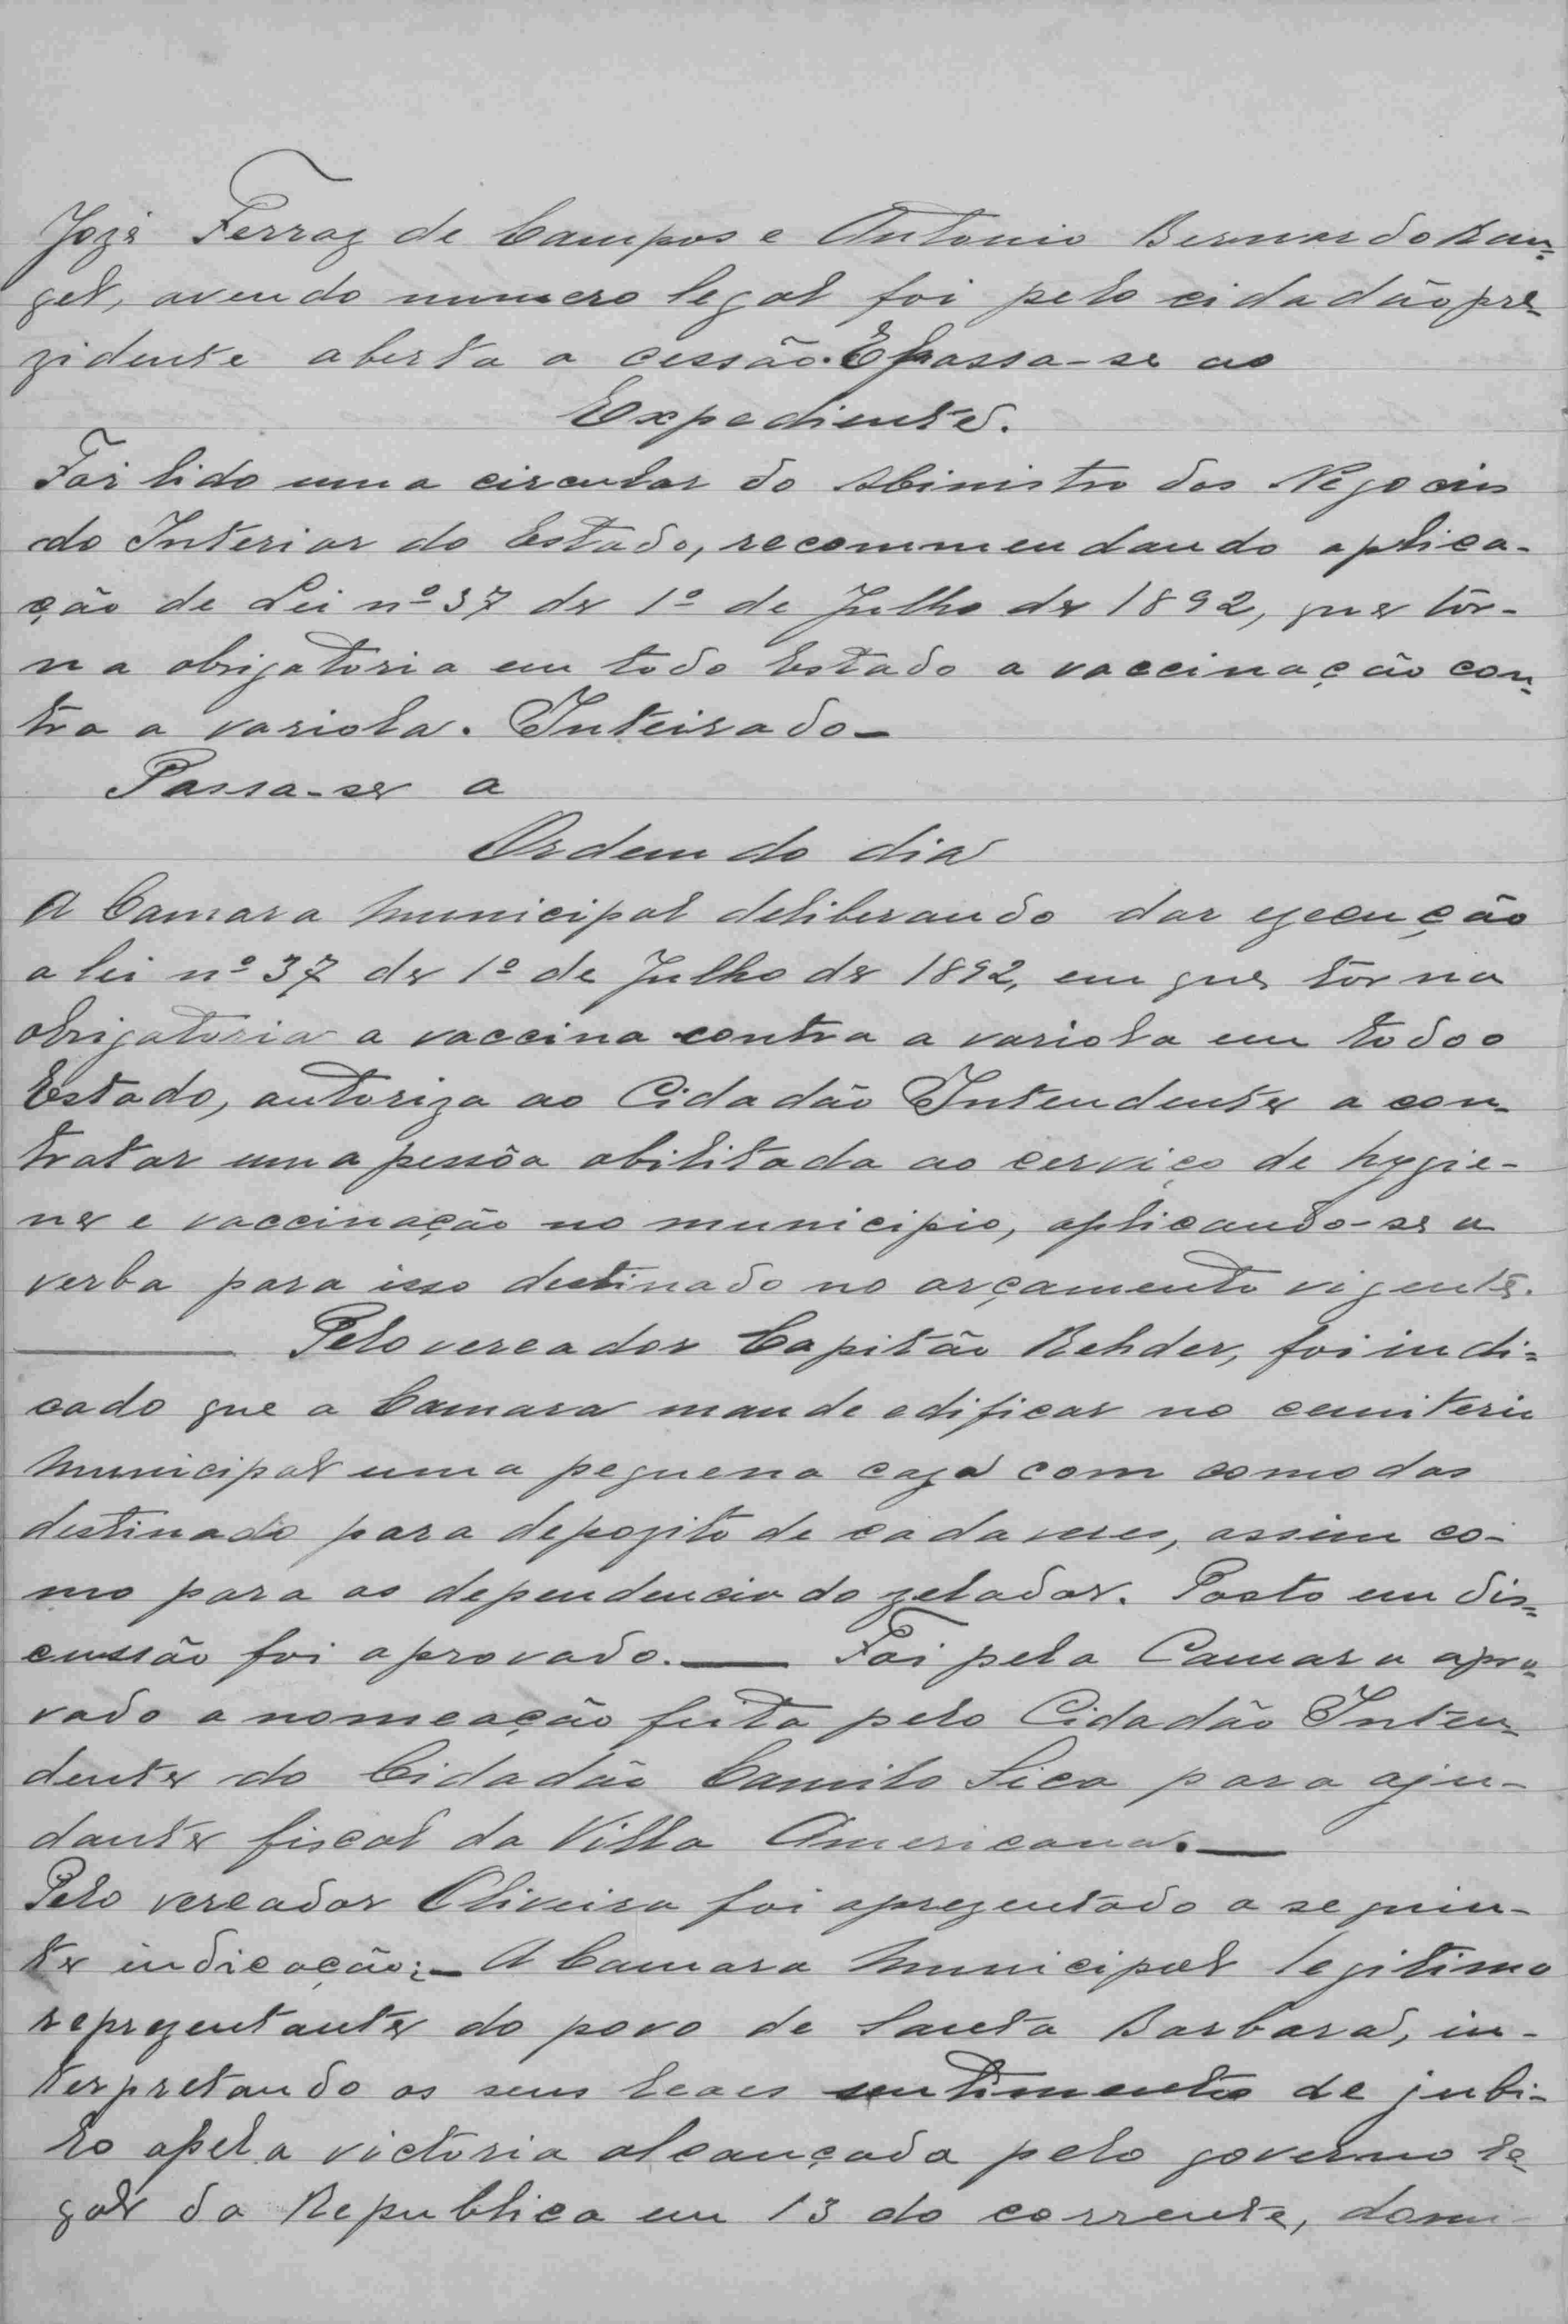 Jozé Ferraz de Campos e Antonio Bernardo Ran-
gel, avendo numero legal foi pelo cidadão pre-
zidente aberta a cessão. E passa-se ao
Expediente.
Foi lido uma circular do Ministro dos Negocios
do Interior do Estado, recommendando aplica-
ção de Lei nº 37 de 1º de Julho de 1892, que tór-
na obrigatoria em todo Estado a vaccinação con-
tra a variola. Inteirado-
Passa-se a
Ordem do dia
A Camara Municipal deliberando dar ezecução
a lei nº 37 de 1º de Julho de 1892, em que tórna
obrigatoria a vaccina contra a variola em todo o
Estado, autoriza ao Cidadão Intendente a con-
tratar uma pessôa abilitada ao cerviço de hygie-
ne e vaccinação no municipio, aplicando-se a
verba para isso destinado no orçamento vigente.
Pelo vereador Capitão Rehder, foi indi-
cado que a Camara mande edificar no cemiterio
Municipal uma pequena caza com comodos
destinado para depozito de cadaveres, assim co-
mo para as dependencia do zelador. Posto em dis-
cussão foi aprovado. — Foi pela Camara apro-
vado a nomeação feita pelo Cidadão Inten-
dente do Cidadão Camilo Sica para aju-
dante fiscal da Villa Americana. —
Pelo vereador Oliveira foi aprezentado a seguin-
te indicação:- A Camara Municipal legitimo
reprezentante do povo de Santa Barbara, in-
terpretando os seus leaes sentimentos de jubi-
lo pela victoria alcançada pelo governo le-
gal da Republica em 13 do corrente, domi-